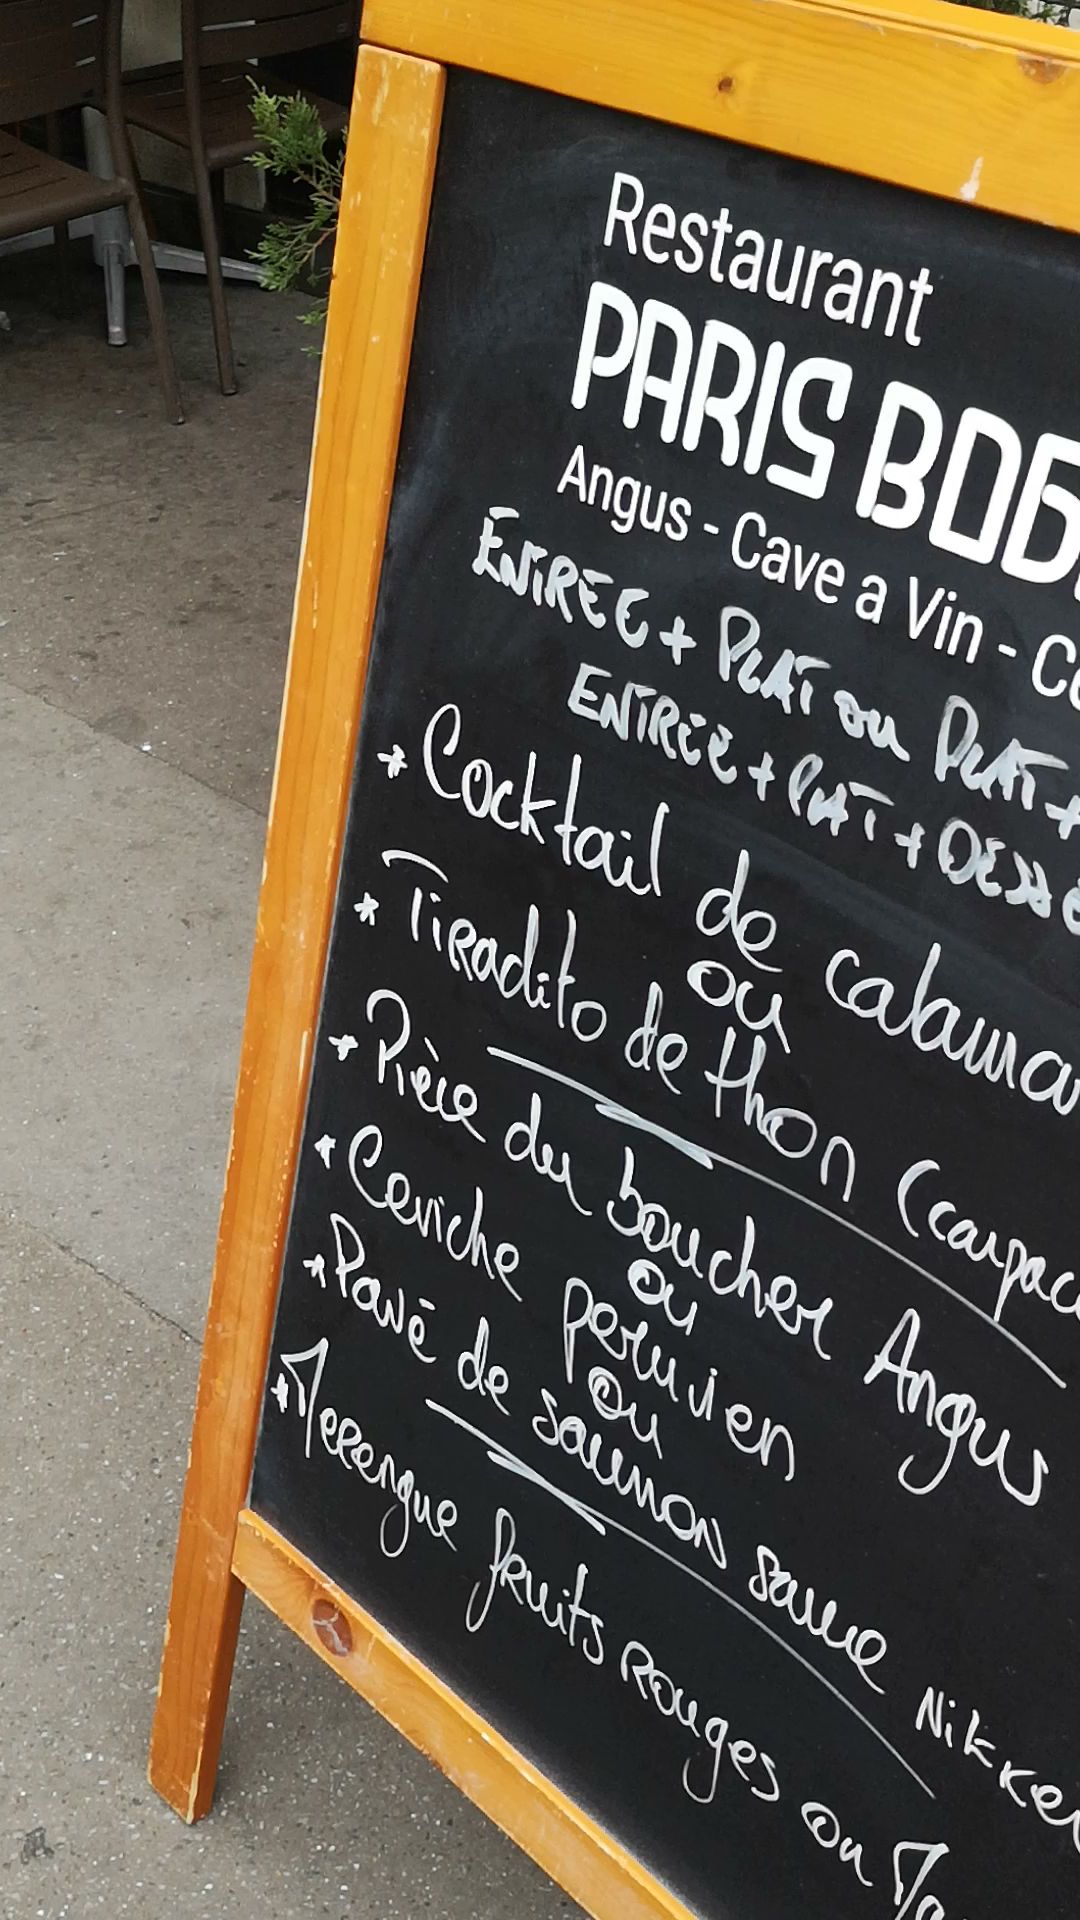 Restaurant
PARIS BODE
Angus - Cave a Vin - Ce
ENTRÉE + PLAT ou PLAT +
ENTRÉE + PLAT + DESSE
* Cocktail de calamar
ou
* Tiradito de thon (carpac
* Pièce du boucher Angus
ou
* Ceviche peruvien
ou
* Pavé de saumon sauce Nikkei
* Merengue fruits rouges ou Ma